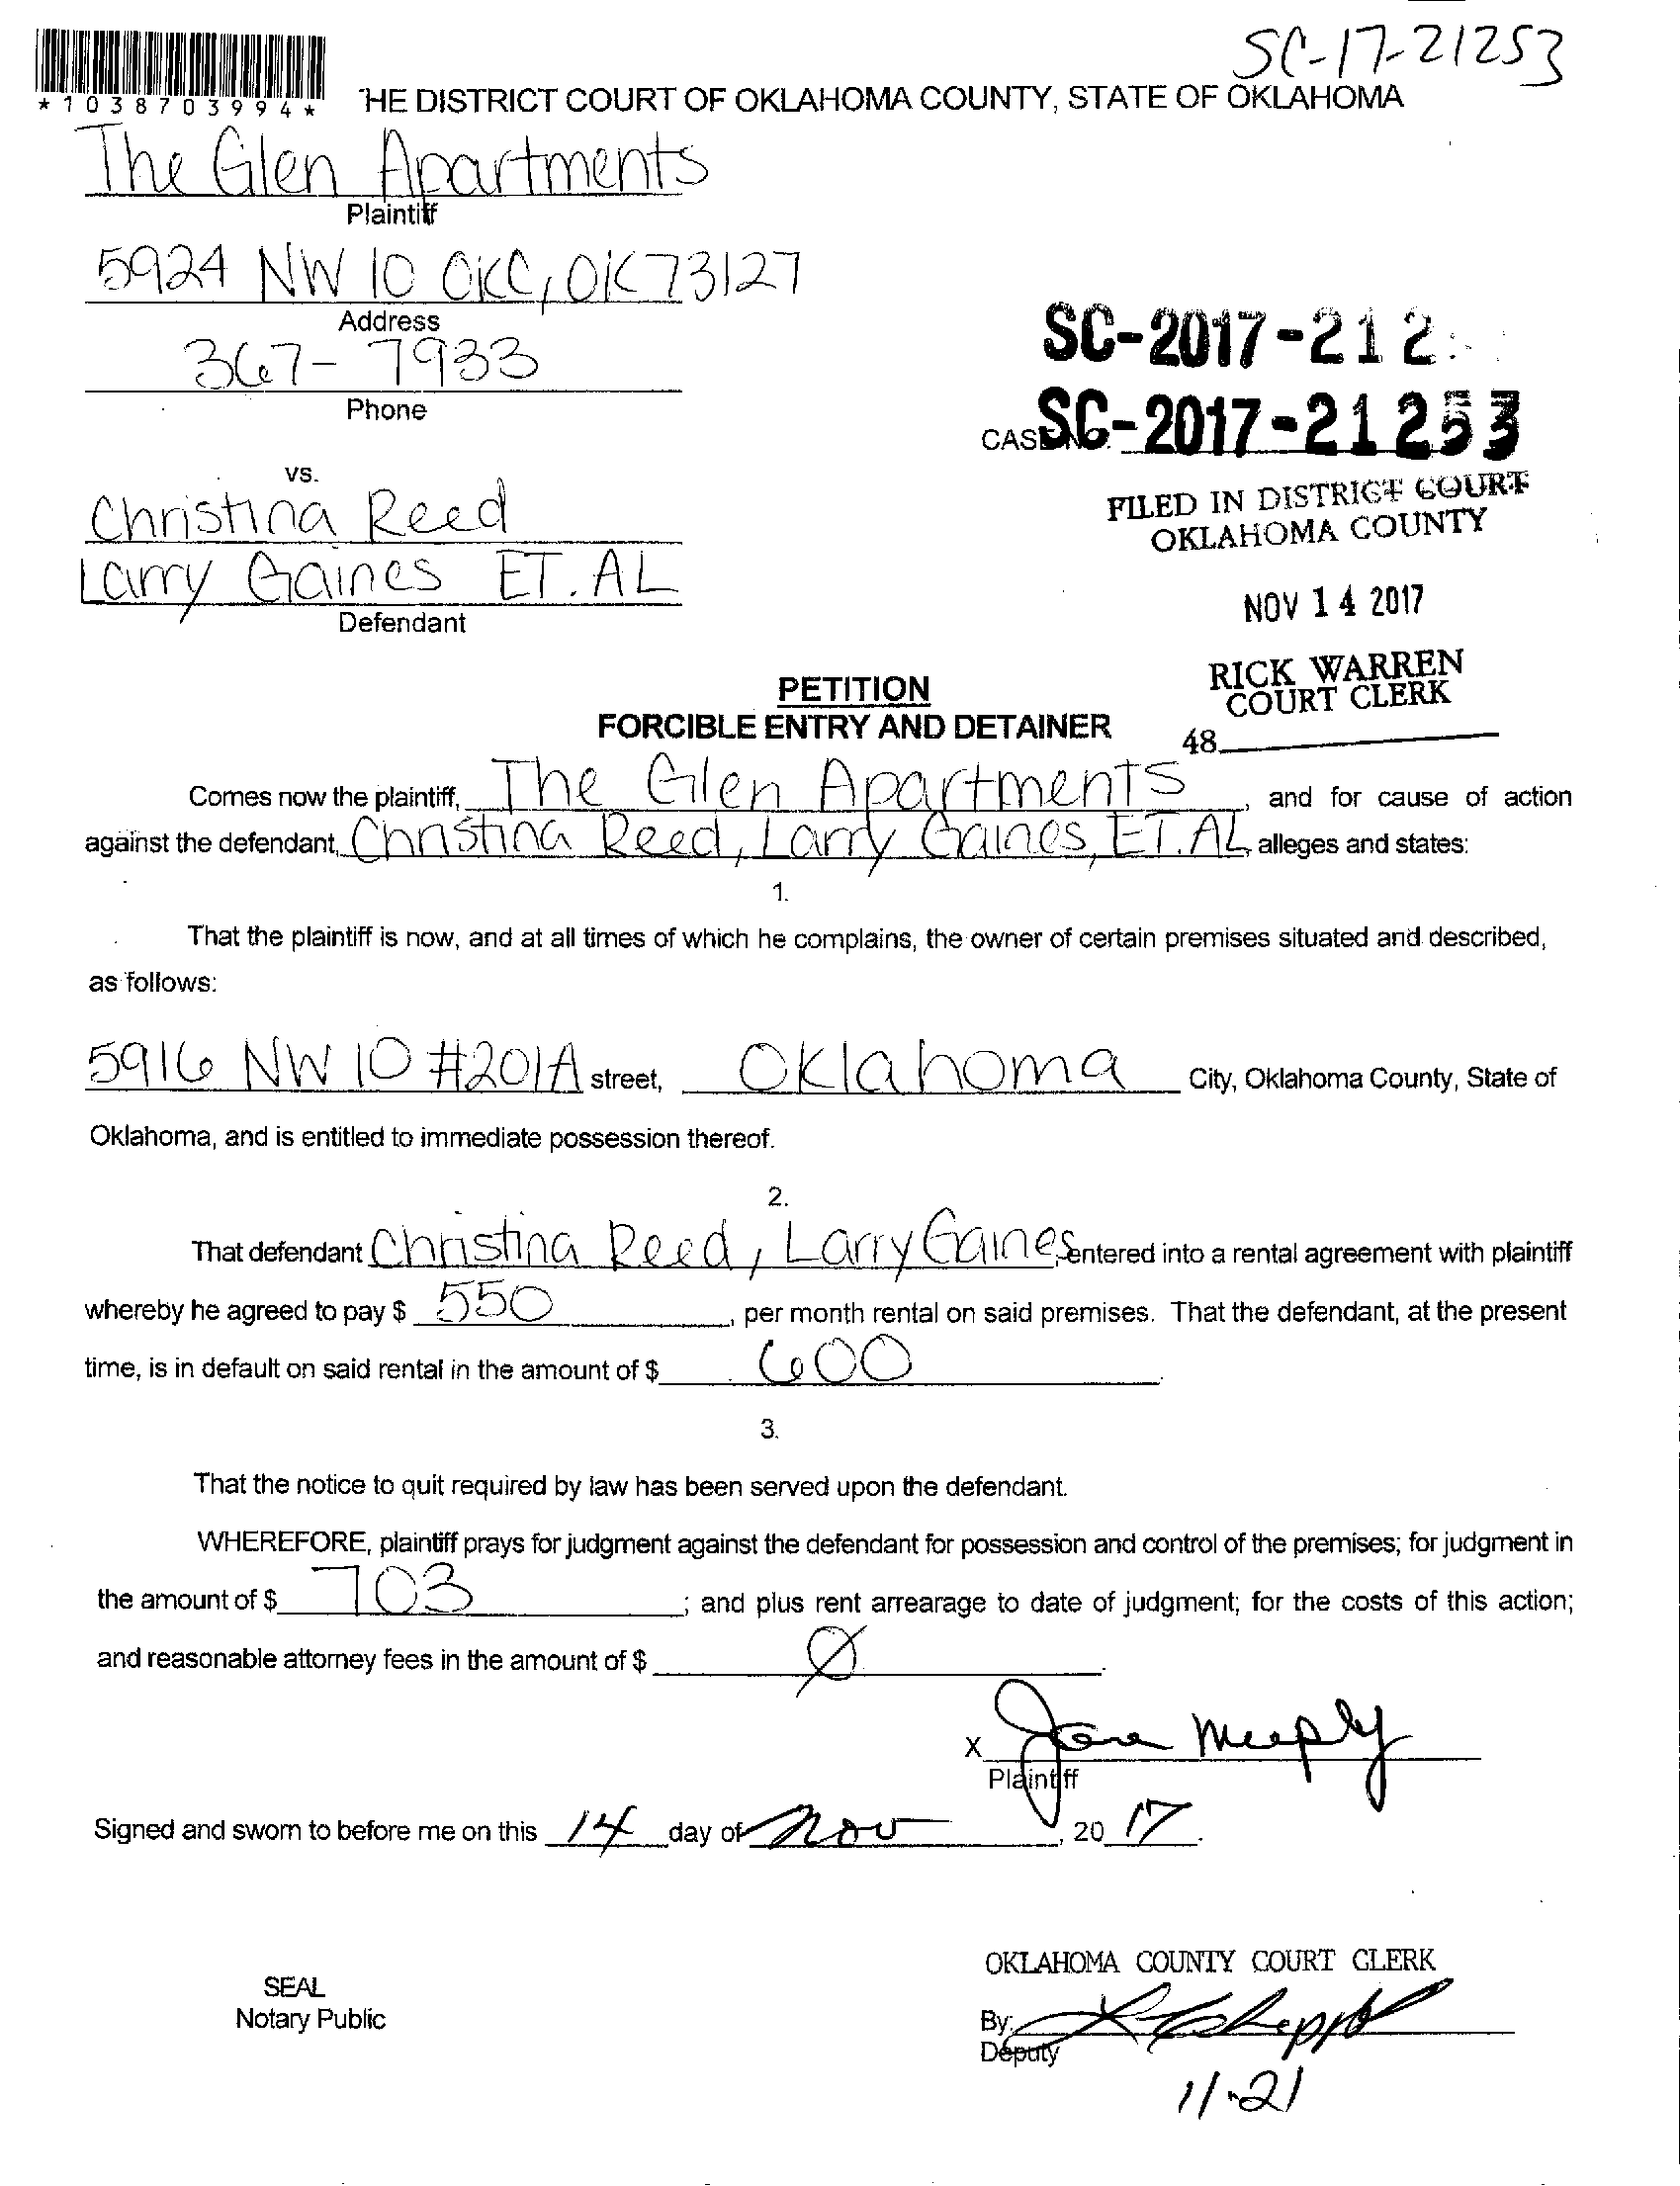 SC-17-21253
*1038703994*
THE DISTRICT COURT OF OKLAHOMA COUNTY, STATE OF OKLAHOMA
The Glen Apartments
Plaintiff
5924 NW 10 OKC, OK 73127
Address
367-7933
Phone
SC-2017-212
CASE NO. SC-2017-21253
vs.
FILED IN DISTRICT COURT
OKLAHOMA COUNTY
Christina Reed
Larry Gaines ET. AL
Defendant
NOV 14 2017
RICK WARREN
COURT CLERK
48
PETITION
FORCIBLE ENTRY AND DETAINER
Comes now the plaintiff, The Glen Apartments, and for cause of action
against the defendant, Christina Reed, Larry Gaines, ET. AL, alleges and states:
1.
That the plaintiff is now, and at all times of which he complains, the owner of certain premises situated and described,
as follows:
5916 NW 10 #201A street, Oklahoma City, Oklahoma County, State of
Oklahoma, and is entitled to immediate possession thereof.
2.
That defendant Christina Reed, Larry Gaines, entered into a rental agreement with plaintiff
whereby he agreed to pay $ 550, per month rental on said premises. That the defendant, at the present
time, is in default on said rental in the amount of $ 600.
3.
That the notice to quit required by law has been served upon the defendant.
WHEREFORE, plaintiff prays for judgment against the defendant for possession and control of the premises; for judgment in
the amount of $ 703; and plus rent arrearage to date of judgment; for the costs of this action;
and reasonable attorney fees in the amount of $ Ø.
X
Plaintiff
Signed and sworn to before me on this 14 day of Nov, 20 17.
OKLAHOMA COUNTY COURT CLERK
SEAL
Notary Public
By:
Deputy
11-21